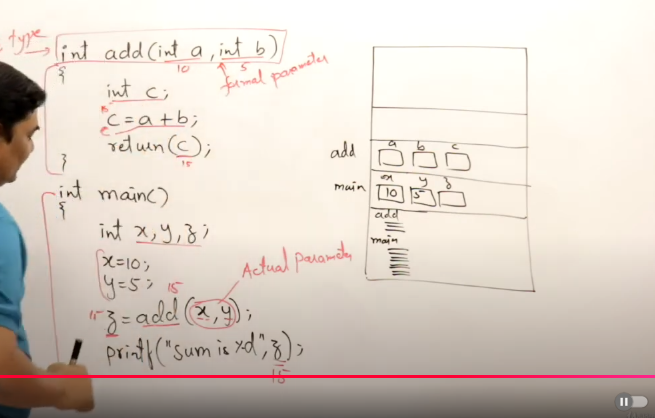 type
int add(int a, int b)
10 5
formal parameter
{
int c;
c=a+b;
return(c);
15
}
int main()
{
int x,y,z;
x=10;
y=5;
15
15 z=add(x,y);
Actual parameter
printf("sum is %d",z);
15
a b c
add
x y z
main 10 5
add
main